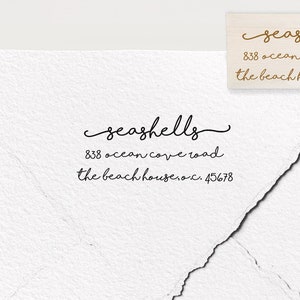 seashells
838 ocean cove road
the beach house, o.c. 45678
seas
838 ocean
the beach h